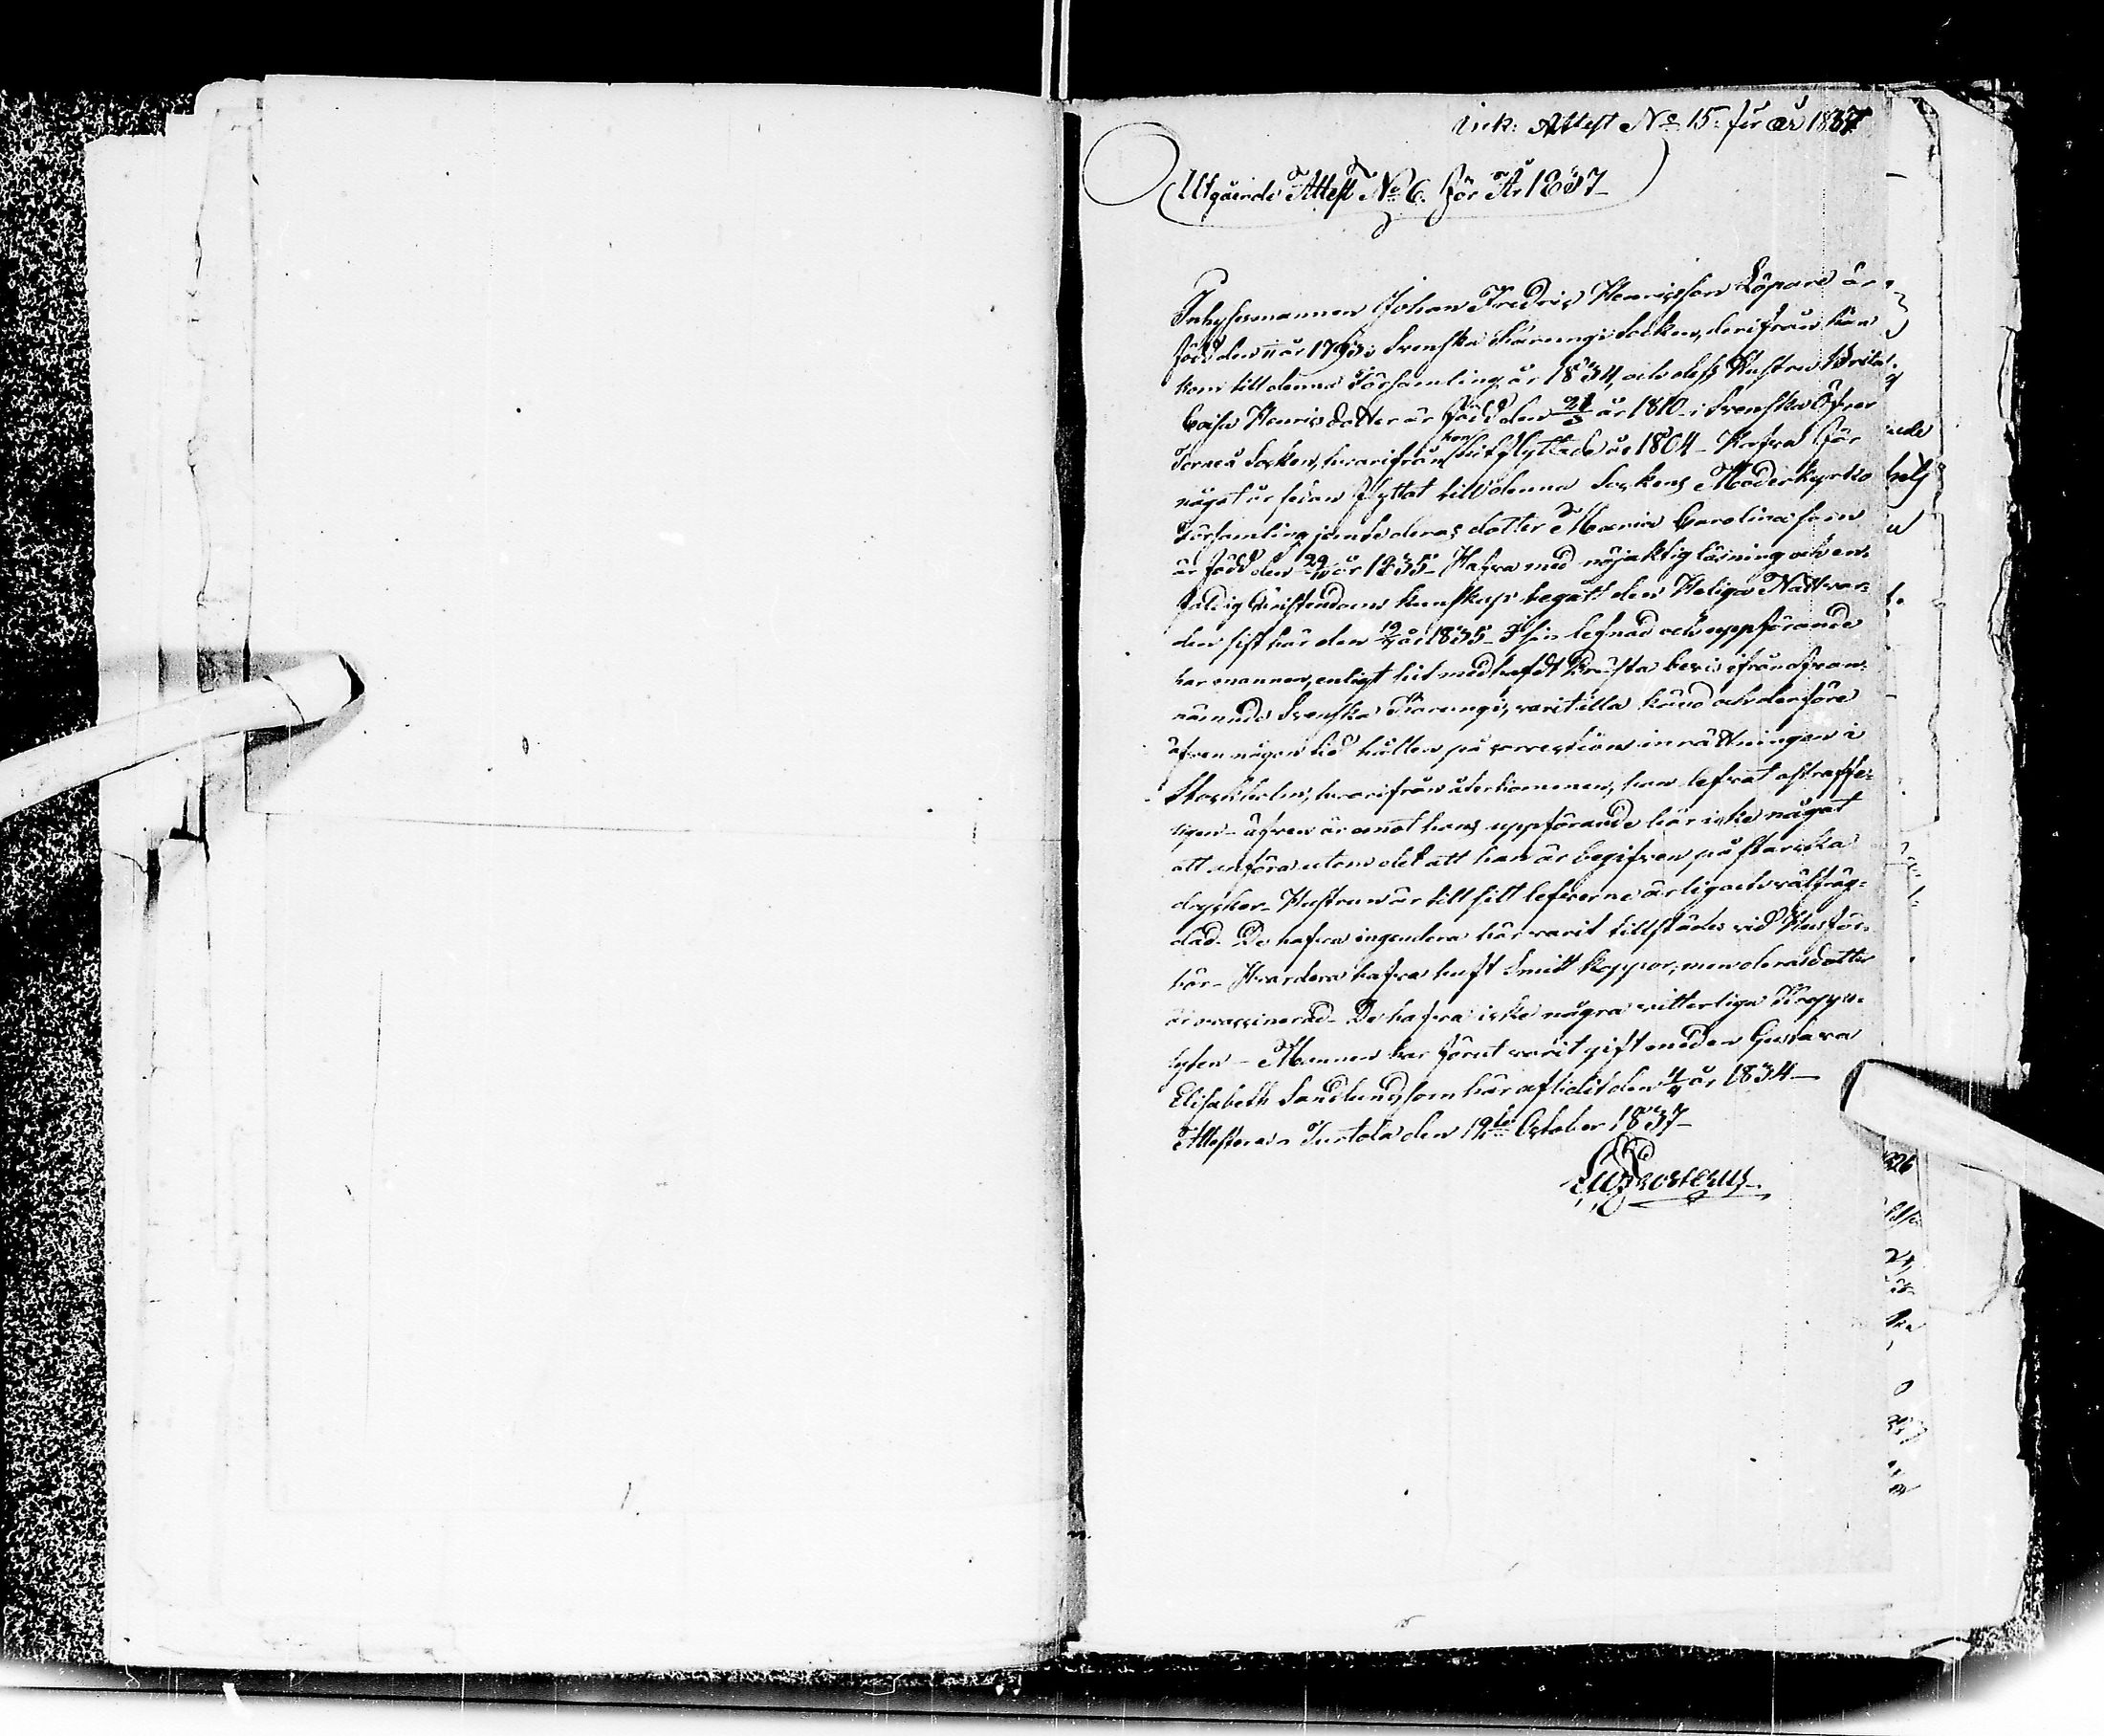 Ink: Attest No 15 för år 1837
Utgående Attest No 6. för År 1837_
Inhysesmannen Johan Fredric Henricsson Löpare är
född den " år 1793 i Svenska Karungi Socken, derifrån han
kom till denna Församling år 1834, och dess Hustru Brita
Caisa Henricsdotter är född den 21/3 år 1810 i Svenska Öfver
Torneå Socken, hvarifrån hon hitflyttade år 1804_ Hafva för
något år sedan flyttat till denna Sockens Moderkyrko
Församling jemte deras dotter Maria Carolina som
är född den 29/11 år 1835_ Hafva med nöjaktig läsning och en-
faldig Christendoms kunskap begått den Heliga Nattvar-
den sist här den 19/7 år 1835_ I sin lefnad och uppförande
har mannen, enligt hit medhafdt Prästa bevis ifrån ofvan-
nämnde Svenska Karungi, varit illa känd och derföre
äfven någon tid hållen på corrections inrättningen i
Stockholm, hvarifrån återkommen, han lefvat ostraffe-
ligen_ äfven är emot hans uppförande här icke något
att anföra utom det att han är begifven på starcka
drycker_ Hustrun är till sitt lefverne ärlig och välfräg-
dad. De hafva ingendera här varit tillstädes vid Husför-
hör_ Hvardera hafva haft Smitt koppor, men deras dotter
är vaccinerad_ De hafva icke några vitterliga Kropps-
lyten_ Mannen har förut varit gift med en Gustava
Elisabeth Sandlund, som här aflidit den 4/4 år 1834_
Attesteras Turtola den 19de October 1837_
Frosterus